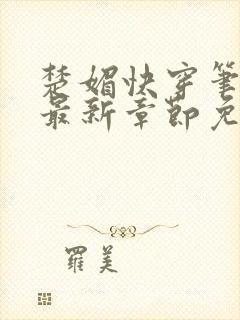 楚媚快穿笔
最新章節免
羅美